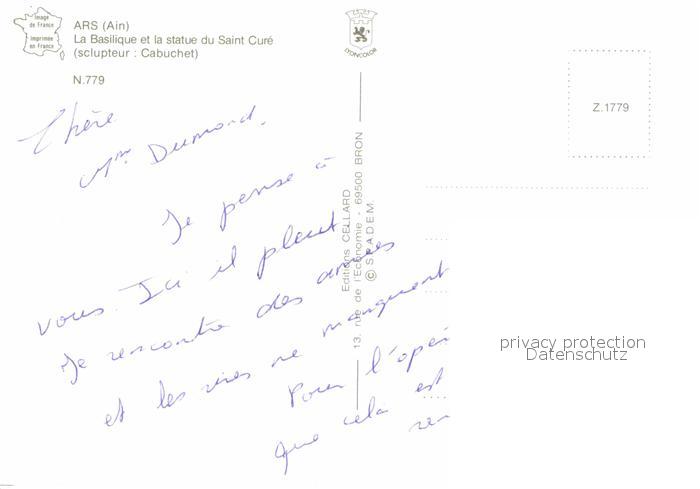 Image
de France
Imprimée
en France
ARS (Ain)
La Basilique et la statue du Saint Curé
(sclupteur : Cabuchet)
N.779
LYONCOLOR
Z.1779
Editions CELLARD
13, rue de l'Economie - 69500 BRON
© S.P.A.D.E.M.
Chère
Mme Dumond,
Je pense à
vous. Ici il pleut.
Je rencontre des amies
et les rires ne manquent
Pour l'opér
que cela est
privacy protection
Datenschutz